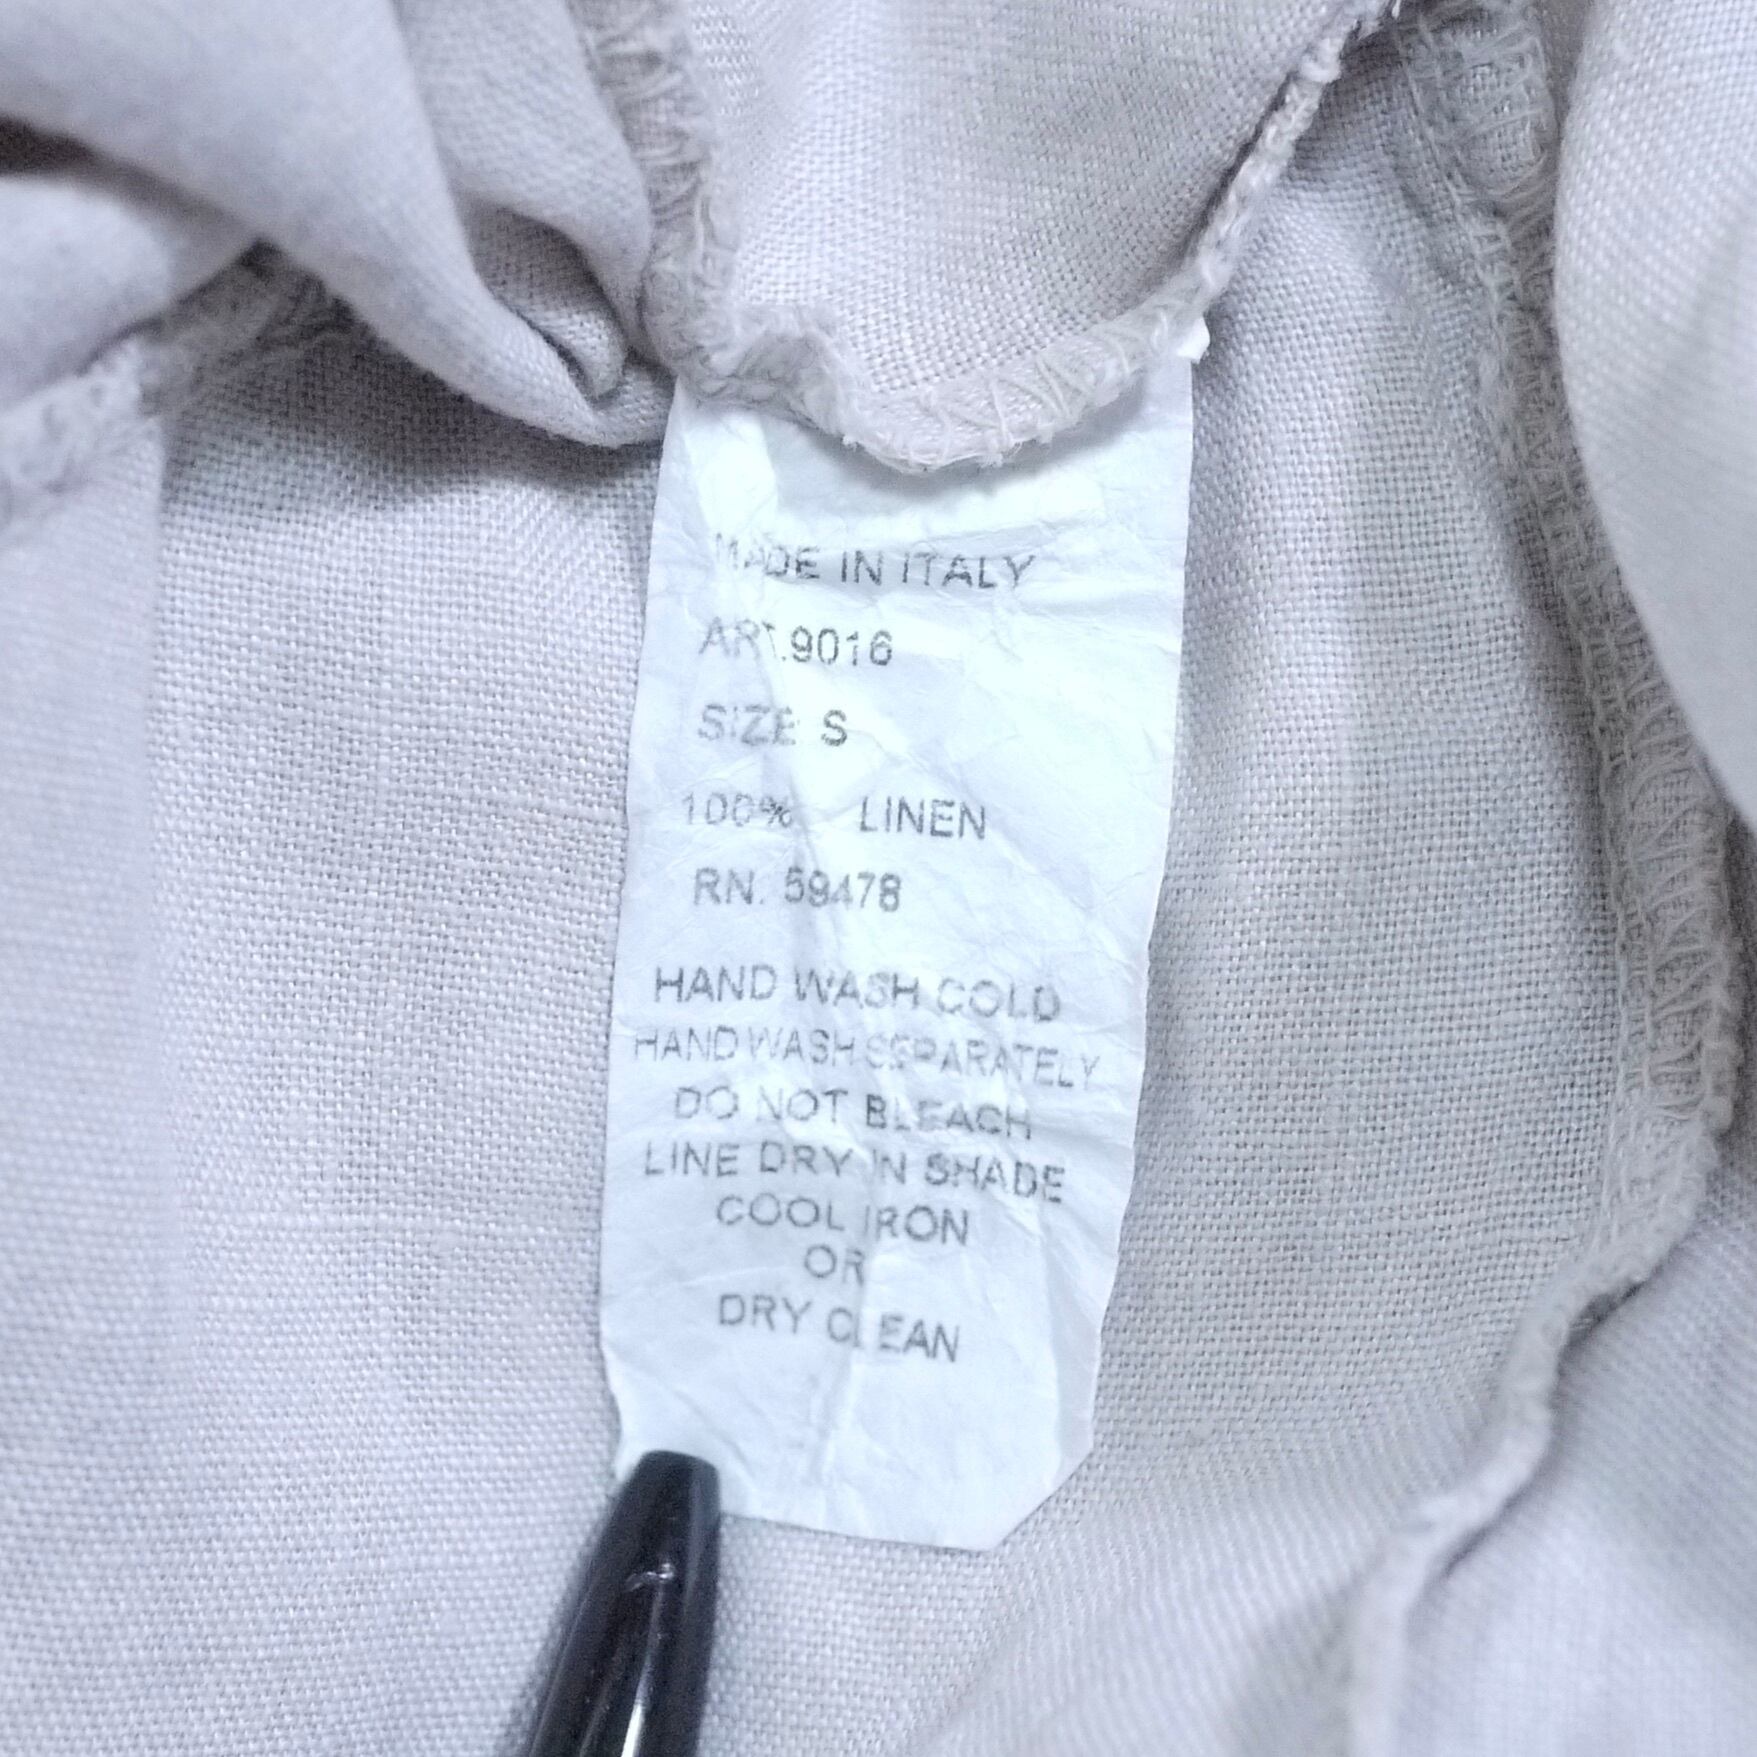 MADE IN ITALY
ART.9016
SIZE: S
100% LINEN
RN. 59478
HAND WASH COLD
HAND WASH SEPARATELY
DO NOT BLEACH
LINE DRY IN SHADE
COOL IRON
OR
DRY CLEAN